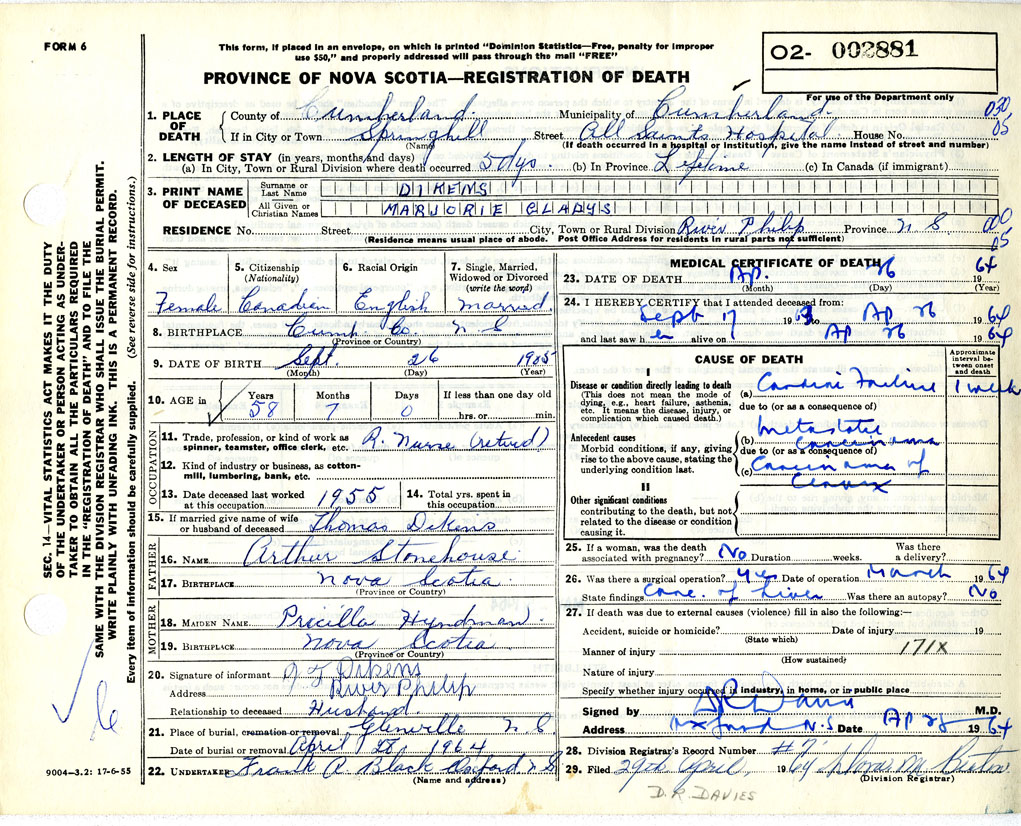 FORM 6
This form, if placed in an envelope, on which is printed "Dominion Statistics—Free, penalty for improper
use $50," and properly addressed will pass through the mail "FREE"
02- 002881
For use of the Department only
PROVINCE OF NOVA SCOTIA—REGISTRATION OF DEATH
SEC. 14—VITAL STATISTICS ACT MAKES IT THE DUTY
OF THE UNDERTAKER OR PERSON ACTING AS UNDER-
TAKER TO OBTAIN ALL THE PARTICULARS REQUIRED
IN THE "REGISTRATION OF DEATH" AND TO FILE THE
SAME WITH THE DIVISION REGISTRAR WHO SHALL ISSUE THE BURIAL PERMIT.
WRITE PLAINLY WITH UNFADING INK. THIS IS A PERMANENT RECORD.
Every item of information should be carefully supplied. (See reverse side for instructions.)
1. PLACE OF DEATH { County of Cumberland Municipality of Cumberland 030
If in City or Town Springhill Street All Saints Hospital House No. 05
(Name) (If death occurred in a hospital or institution, give the name instead of street and number)
2. LENGTH OF STAY (in years, months, and days)
(a) In City, Town or Rural Division where death occurred 5 dys. (b) In Province Lifetime (c) In Canada (if immigrant)
3. PRINT NAME OF DECEASED { Surname or Last Name DIKENS
All Given or Christian Names MARJORIE GLADYS
RESIDENCE No. Street City, Town or Rural Division River Philip Province N S 00
(Residence means usual place of abode. Post Office Address for residents in rural parts not sufficient) 05
4. Sex 5. Citizenship (Nationality) 6. Racial Origin 7. Single, Married, Widowed or Divorced (write the word)
Female Canadian English Married
8. BIRTHPLACE Cumb Co. N S
(Province or Country)
9. DATE OF BIRTH Sept. 26 1905
(Month) (Day) (Year)
10. AGE in Years Months Days If less than one day old
58 7 0 hrs. or min.
OCCUPATION
11. Trade, profession, or kind of work as spinner, teamster, office clerk, etc. R. Nurse (retired)
12. Kind of industry or business, as cotton-mill, lumbering, bank, etc.
13. Date deceased last worked at this occupation 1955 14. Total yrs. spent in this occupation
15. If married give name of wife or husband of deceased Thomas Dikens
FATHER
16. NAME Arthur Stonehouse
17. BIRTHPLACE Nova Scotia
(Province or Country)
MOTHER
18. MAIDEN NAME Pricilla Hyndman
19. BIRTHPLACE Nova Scotia
(Province or Country)
20. Signature of informant Dikens
Address River Philip
Relationship to deceased Husband
21. Place of burial, cremation or removal Glenville N S
Date of burial or removal April 28 1964
22. UNDERTAKER Frank R. Black Oxford N S
(Name and address)
9004—3.2: 17-6-55
MEDICAL CERTIFICATE OF DEATH
23. DATE OF DEATH Ap. 26 1964
(Month) (Day) (Year)
24. I HEREBY CERTIFY that I attended deceased from:
Sept 17 1963 to Ap 26 1964
and last saw h er alive on Ap 26 1964
CAUSE OF DEATH
Approximate interval between onset and death
I
Disease or condition directly leading to death
(This does not mean the mode of dying, e.g., heart failure, asthenia, etc. It means the disease, injury, or complication which caused death.)
(a) Cardiac Failure 1 week
due to (or as a consequence of)
Antecedent causes
Morbid conditions, if any, giving rise to the above cause, stating the underlying condition last.
(b) Metastatic Carcinoma
due to (or as a consequence of)
(c) Carcinoma of Cervix
II
Other significant conditions
contributing to the death, but not related to the disease or condition causing it.
25. If a woman, was the death associated with pregnancy? No Duration weeks. Was there a delivery?
26. Was there a surgical operation? Yes Date of operation March 1964
State findings Carc. of Liver Was there an autopsy? No
27. If death was due to external causes (violence) fill in also the following:—
Accident, suicide or homicide? Date of injury 19
(State which)
Manner of injury 171X
(How sustained)
Nature of injury
Specify whether injury occurred in industry, in home, or in public place
Signed by D R Davies M.D.
Address Oxford N.S Date Ap 28 1964
28. Division Registrar's Record Number #7
29. Filed 29th April, 1964
(Division Registrar)
D. R. DAVIES